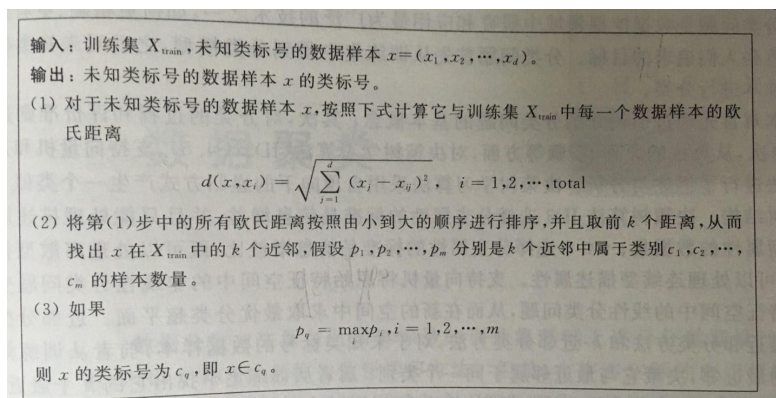 输入：训练集 Xtrain，未知类标号的数据样本 x=(x1,x2,…,xd)。
输出：未知类标号的数据样本 x 的类标号。
(1) 对于未知类标号的数据样本 x，按照下式计算它与训练集 Xtrain 中每一个数据样本的欧
氏距离
d(x,xi) = √∑_{j=1}^{d} (xj − xij)², i = 1,2,…,total
(2) 将第(1)步中的所有欧氏距离按照由小到大的顺序进行排序，并且取前 k 个距离，从而
找出 x 在 Xtrain 中的 k 个近邻，假设 p1,p2,…,pm 分别是 k 个近邻中属于类别 c1,c2,…,
cm 的样本数量。
(3) 如果
pq = maxpi, i = 1,2,…,m
则 x 的类标号为 cq，即 x∈cq。